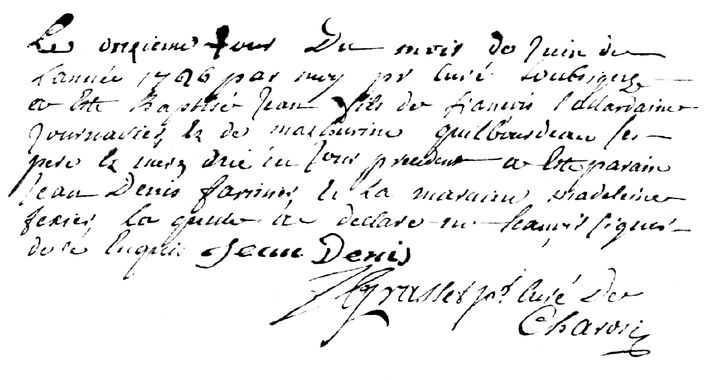 Le onzieme Jour Du mois de Juin de
Lannée 1726 par moy ptr Curé Soubsigné
a Este Baptisé Jean fils de francois
Journalier & de mathurine quilbourdeau ses
pere & mere du Jour precedent a Este parain
Jean Denis farinier & La maraine Madeleine
texier la quelle a declare ne scavoir signer
de ce Enquise Jean Denis
Grasset ptr Curé De
Charon